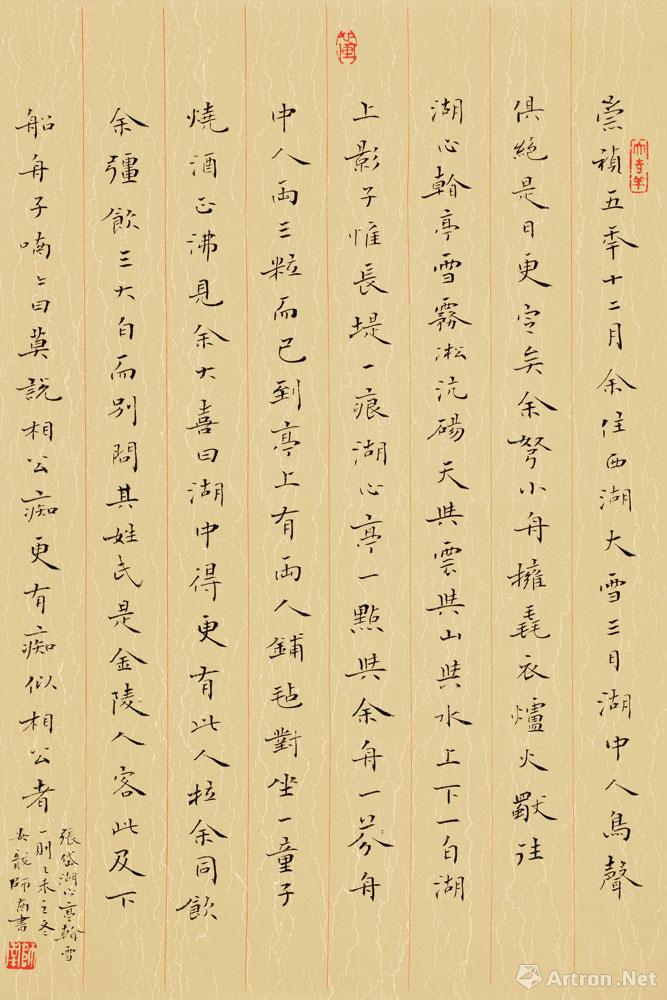 崇禎五年十二月余住西湖大雪三日湖中人鳥聲
俱絕是日更定矣余拏小舟擁毳衣爐火獨往
湖心看亭雪霧凇沆碭天與雲與山與水上下一白湖
上影子惟長堤一痕湖心亭一點與余舟一芥舟
中人兩三粒而已到亭上有兩人鋪毡對坐一童子
燒酒正沸見余大喜曰湖中得更有此人拉余同飲
余彊飲三大白而別問其姓氏是金陵人客此及下
船舟子喃〻曰莫說相公痴更有痴似相公者
張岱湖心亭看雪
一則乙未之冬
師南書
Artron.Net